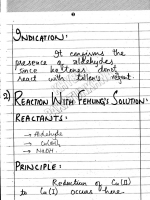 INDICATION:
It confirms the
presence of aldehydes
since ketones don't
react with tollen's reagent.
2) REACTION WITH FEHLING'S SOLUTION:
REACTANTS:
→ Aldehyde
→ Cu(OH)₂
→ NaOH.
PRINCIPLE:
Reduction of Cu(II)
to Cu(I) occurs here